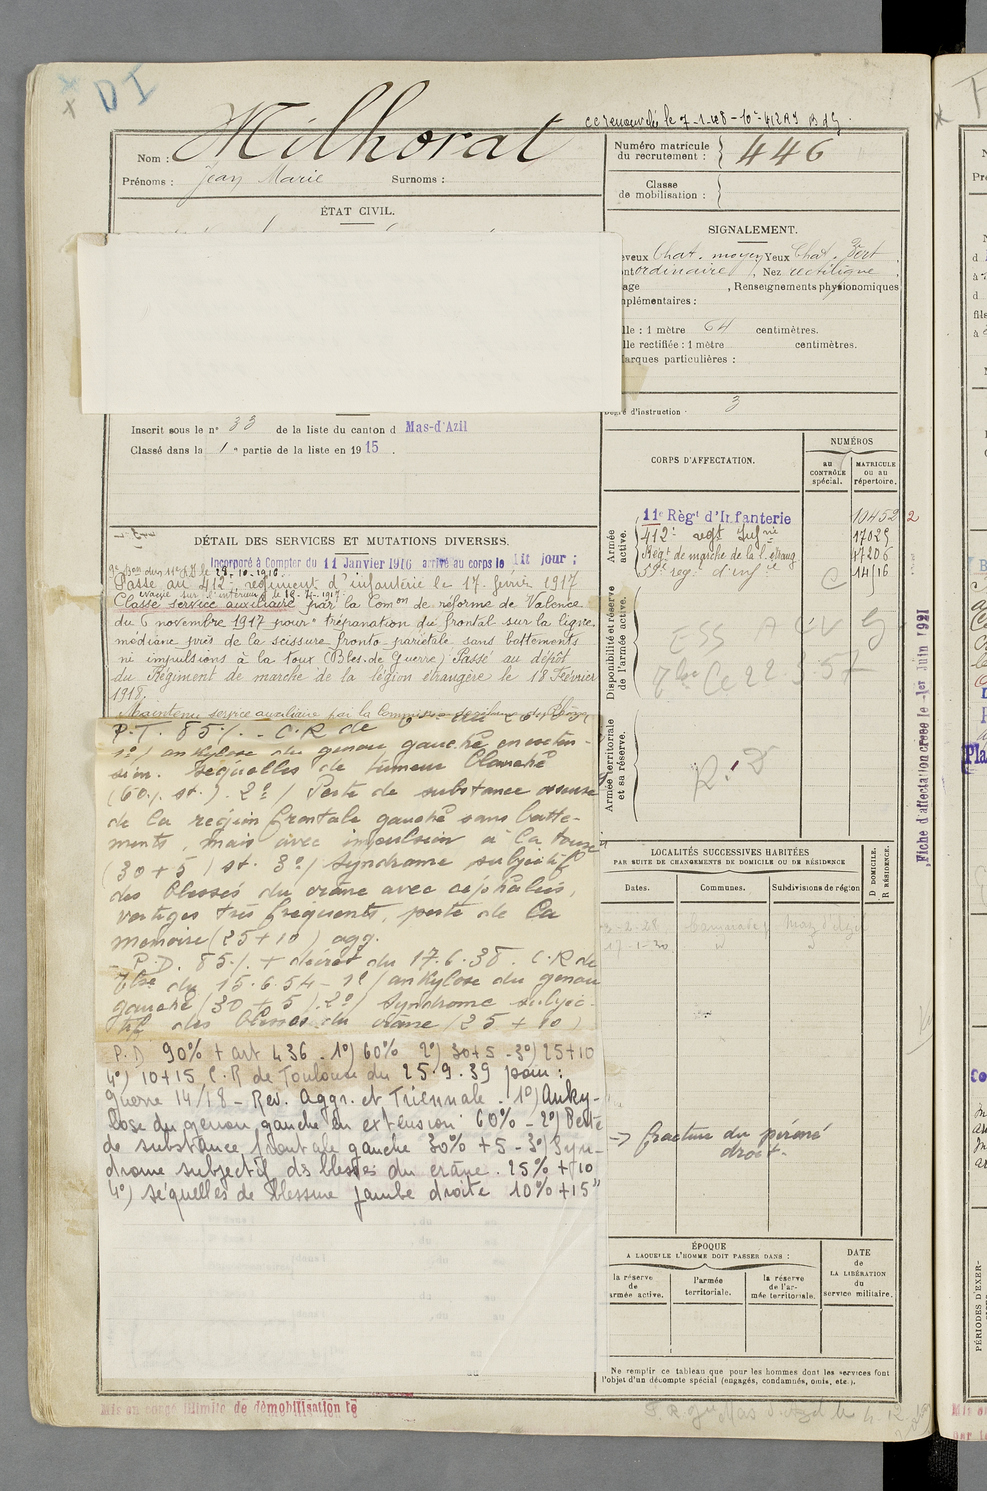 DI
Milhorat
cc renouvelée le 7-1-28
Nom :
Prénoms : Jean Marie Surnoms :
Numéro matricule
du recrutement : 446
Classe
de mobilisation :
ÉTAT CIVIL.
SIGNALEMENT.
eveux Chat. moyen Yeux Chat. Vert
ont ordinaire , Nez rectiligne
age , Renseignements physionomiques
mplémentaires :
lle : 1 mètre 64 centimètres.
lle rectifiée : 1 mètre centimètres.
arques particulières :
Degré d'instruction : 3
Inscrit sous le n° 33 de la liste du canton d Mas-d'Azil
Classé dans la 1e partie de la liste en 1915 .
CORPS D'AFFECTATION.
NUMÉROS
AU CONTRÔLE spécial.
MATRICULE OU AU répertoire.
Armée active.
11e Règt d'Infanterie 10452 2
412e regt Infrie 17029
Régt de marche de la l. étrang 17206
59e regt d'infie C 14/16
Disponibilité et réserve de l'armée active.
Armée territoriale et sa réserve.
R.D
DÉTAIL DES SERVICES ET MUTATIONS DIVERSES.
Incorporé à Compter du 11 Janvier 1916 arrivé au corps le dit jour ;
Passé au 412e régiment d'infanterie le 17 février 1917
évacué sur l'intérieur le
Classé service auxiliaire par la Comon de réforme de Valence
du 6 novembre 1917 pour trépanation du frontal sur la ligne
médiane près de la scissure fronto-pariétale sans battements
ni impulsions à la toux (Bles. de Guerre) Passé au dépôt
du Régiment de marche de la légion étrangère le 18 Février
1918.
Maintenu service auxiliaire par la
P.T. 85% - C.R de
1°/ ankylose du genou gauche en exten-
sion. Séquelles de tumeur blanche
(60% st.). 2°/ Perte de substance osseuse
de la région frontale gauche sans batte-
ments, mais avec impulsion à la toux
(30 + 5) st. 3°/ Syndrome subjectif
des blessés du crâne avec céphalées,
vertiges très fréquents, perte de la
mémoire (25+10) agg.
P.D. 85% + décret du 17.6.38. C.R de
Tlse du 15.6.54 - 1°/ ankylose du genou
gauche (30 + 5) 2°/ Syndrome subjec-
tif des blessés du crâne (25 + 10)
P.D 90% + art 436. 1°) 60% 2°) 30+5 - 3°) 25+10
4°) 10+15 C.R de Toulouse du 25.9.39 pour :
Guerre 14/18 - Rev. Aggr. et Triennale - 1°) Anky-
lose du genou gauche en extension 60% - 2°) Perte
de substance frontale gauche 30% + 5 - 3°) Syn-
drome subjectif des blessés du crâne . 25% + 10
4°) séquelles de blessure jambe droite 10% + 15"
LOCALITÉS SUCCESSIVES HABITÉES
PAR SUITE DE CHANGEMENTS DE DOMICILE OU DE RÉSIDENCE
Dates.
Communes.
Subdivisions de région
D DOMICILE.
R RÉSIDENCE.
→ fracture du péroné
droit -
ÉPOQUE
A LAQUELLE L'HOMME DOIT PASSER DANS :
la réserve de armée active.
l'armée territoriale.
la réserve de l'armée territoriale.
DATE de LA LIBÉRATION du service militaire.
Ne remplir ce tableau que pour les hommes dont les services font
l'objet d'un décompte spécial (engagés, condamnés, omis, etc.).
Mis en congé illimité de démobilisation le
Fiche d'affectation créée le 1er Juin 1921
PÉRIODES D'EXER-